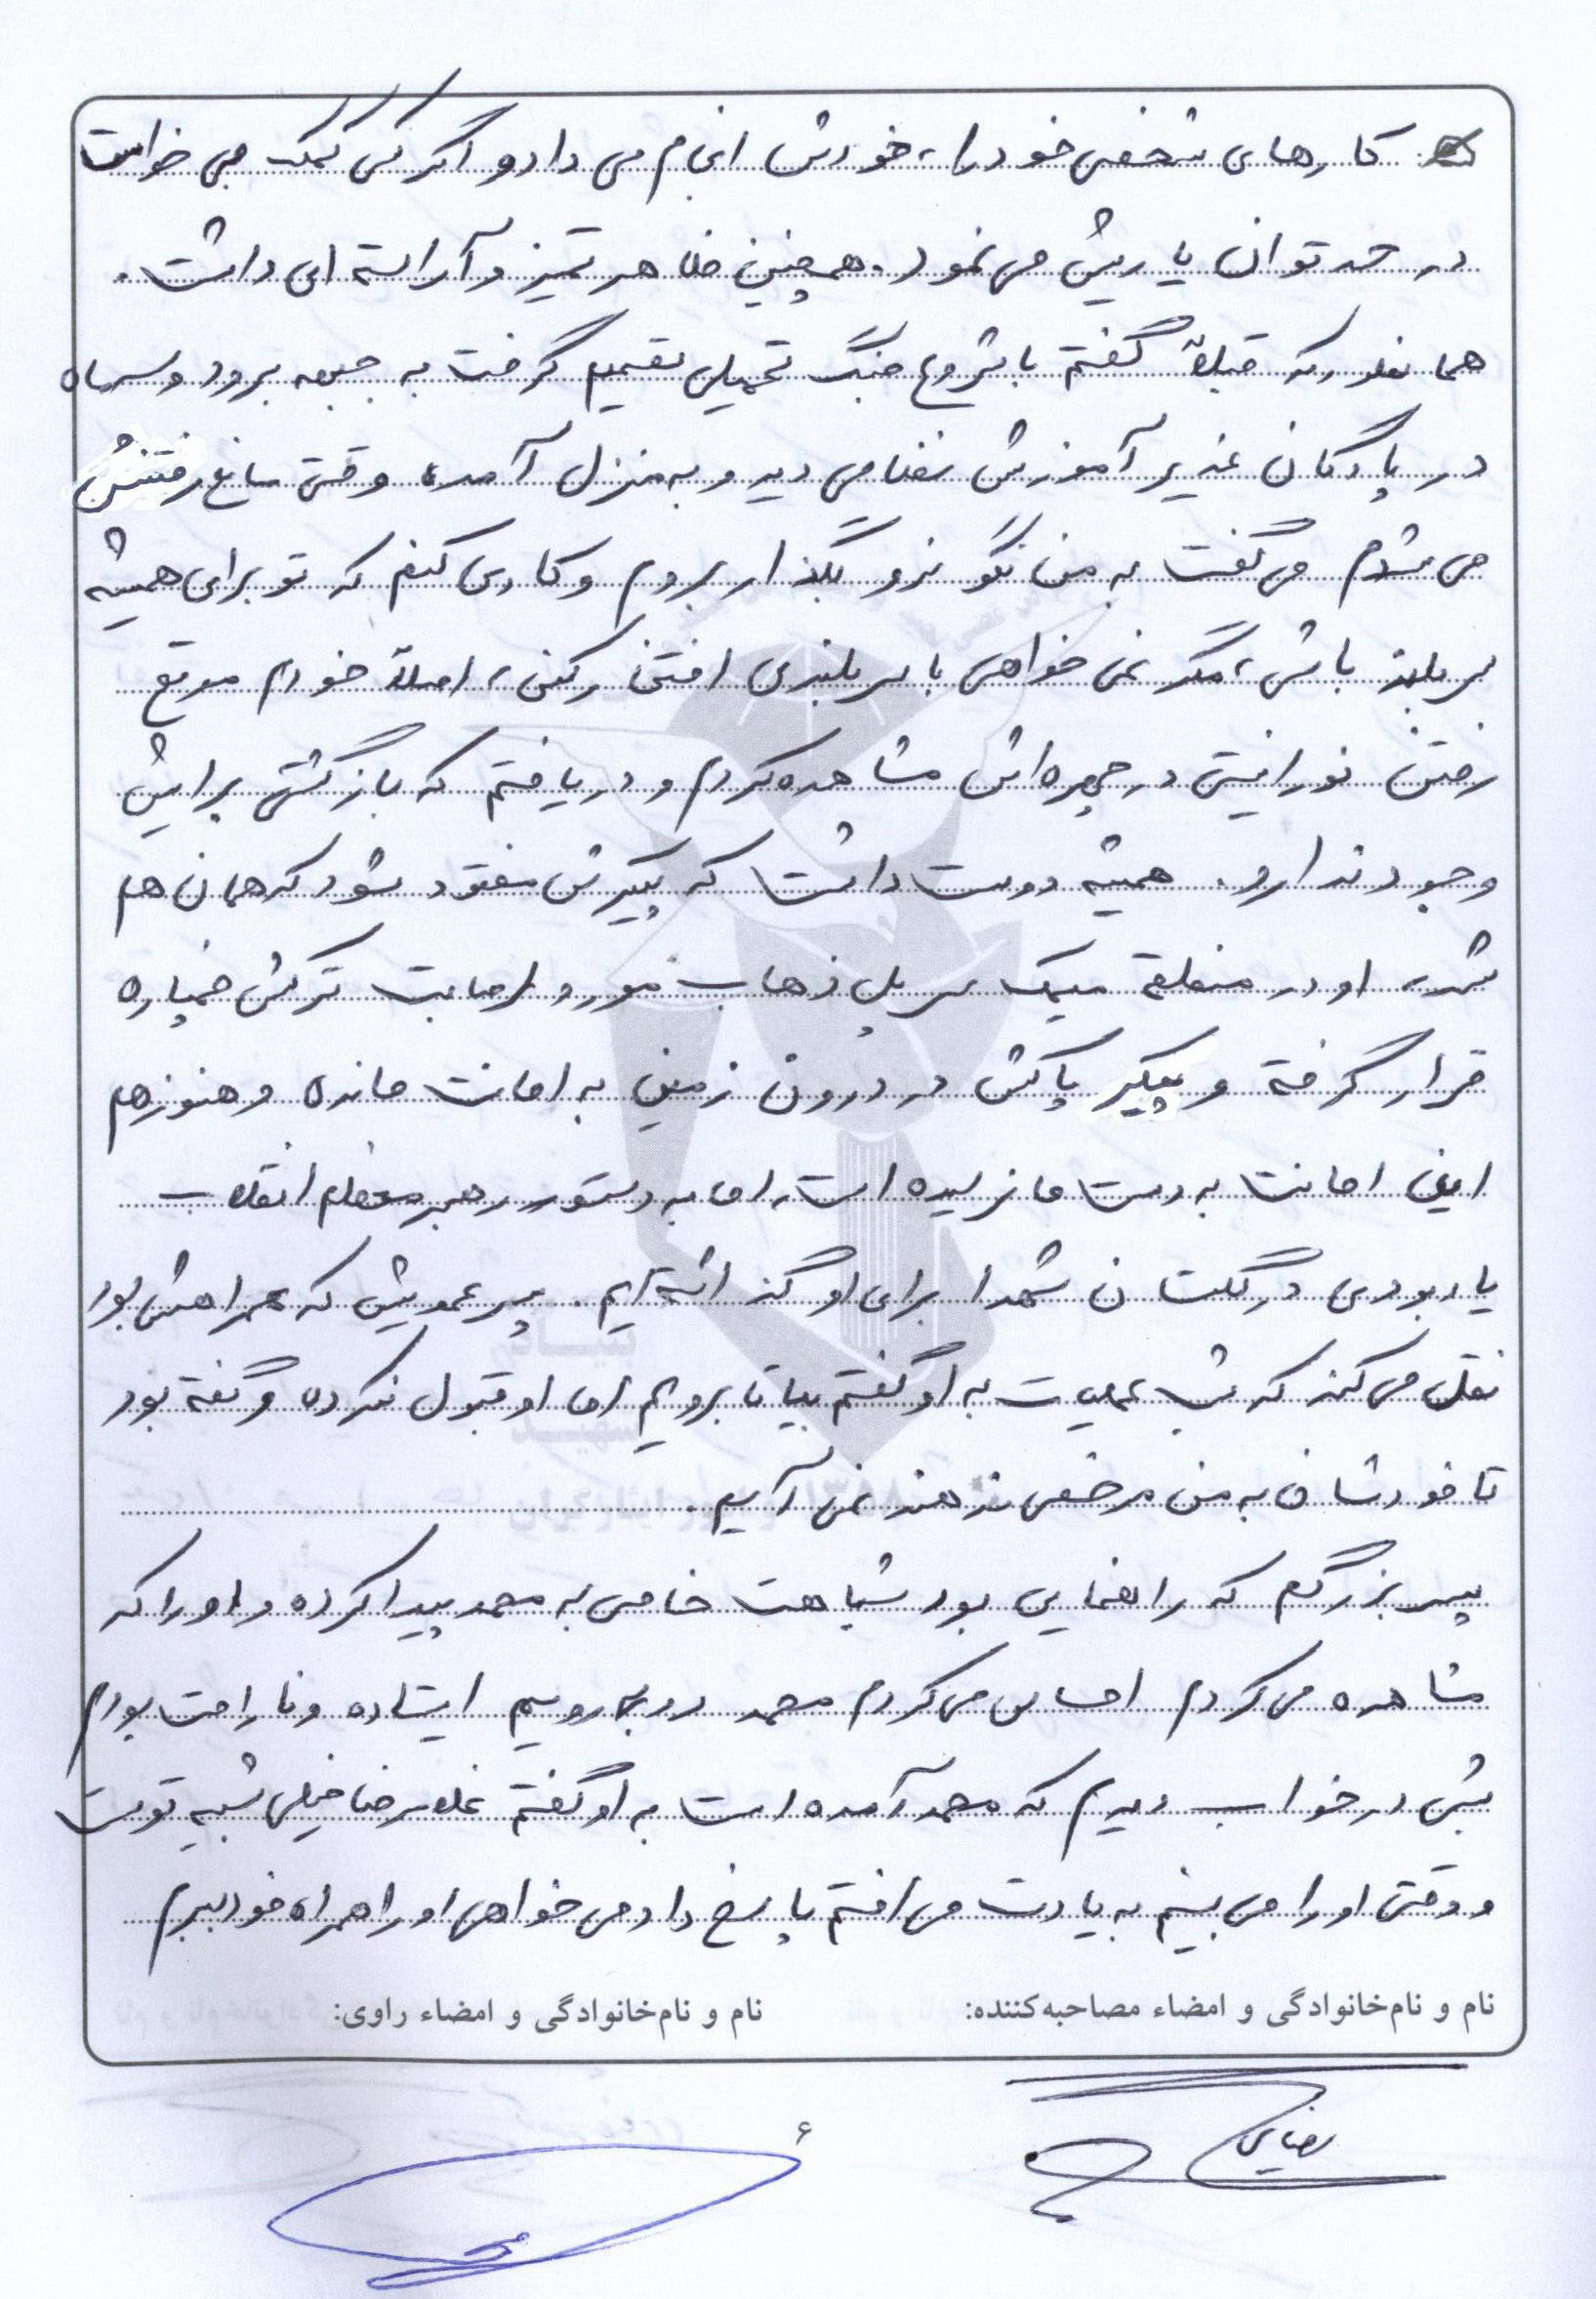 کارهای شخصی خود را، خودش انجام می داد و اگر کسی کمک می خواست
در حد توان یاریش می نمود. همچنین ظاهر تمیز و آراسته ای داشت.
همانطور که قبلاً گفتم با شروع جنگ تحمیلی تصمیم گرفت به جبهه برود و سه ماه
در پادگان غدیر آموزش نظامی دید و به منزل آمد، وقتی مانع رفتنش
می شدم می گفت به من نگو نرو بگذار بروم و کاری کنم که تو برای همیشه
سربلند باشی، مگر نمی خواهی با سربلندی افتخار کنی، اصلاً خودم موقع
رفتن نورانیتی در چهره اش مشاهده کردم و دریافتم که بازگشتی برایش
وجود ندارد. همیشه دوست داشت که پیکرش مفقود شود که همان هم
شد، او در منطقه میمک سرپل ذهاب مورد اصابت ترکش خمپاره
قرار گرفته و پیکر پاکش در درون زمین به امانت مانده و هنوز هم
این امانت به دست ما نرسیده است، اما به دستور رهبر معظم انقلاب
یادبودی در گلستان شهدا برای او گذاشته ایم. پسر عمویش که همراهش بود
نقل می کند که شب عملیات به او گفتم بیا تا برویم اما او قبول نکرده و گفته بود
تا خودشان به من مرخصی ندهند نمی آیم.
پسر بزرگم که راهنمایی بود شباهت خاصی به محمد پیدا کرده و او را که
مشاهده می کردم احساس می کردم محمد روبرویم ایستاده و ناراحت بودم
شبی در خواب دیدم که محمد آمده است به او گفتم غلامرضا خیلی شبیه توست
و وقتی او را می بینم به یادت می افتم پاسخ داد می خواهی او را همراه خود ببرم
نام و نام‌خانوادگی و امضاء مصاحبه‌کننده:
نام و نام‌خانوادگی و امضاء راوی:
رضایی
۶